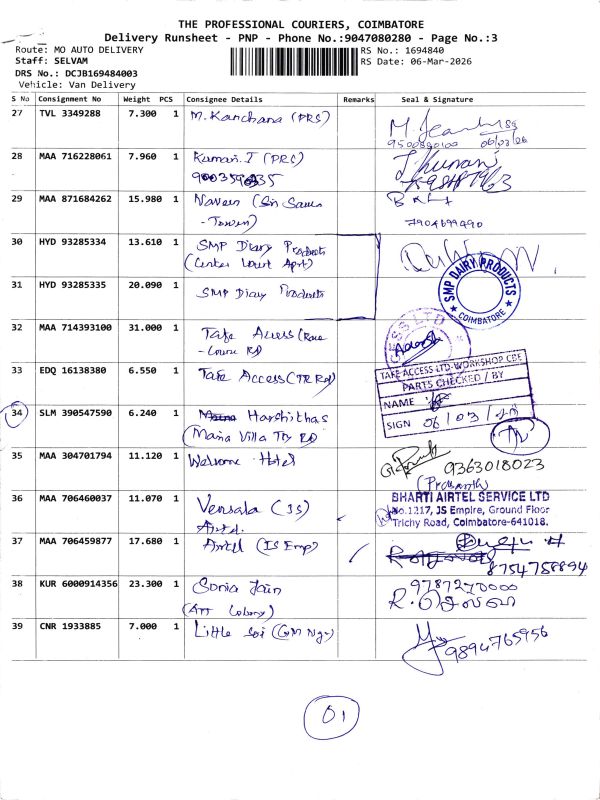 THE PROFESSIONAL COURIERS, COIMBATORE
Delivery Runsheet - PNP - Phone No.:9047080280 - Page No.:3
Route: MO AUTO DELIVERY
RS No.: 1694840
Staff: SELVAM
RS Date: 06-Mar-2026
DRS No.: DCJB169484003
Vehicle: Van Delivery
S No Consignment No Weight PCS Consignee Details Remarks Seal & Signature
27 TVL 3349288 7.300 1 M. Kanchana (PRS)
06/03/26
28 MAA 716228061 7.960 1 Kumar. I (PRS)
29 MAA 871684262 15.980 1 Naveen
7904699490
30 HYD 93285334 13.610 1 SMP Diary Products
(Center Court Apt)
31 HYD 93285335 20.090 1 SMP Diary Products
SMP DAIRY PRODUCTS
COIMBATORE
32 MAA 714393100 31.000 1 Take Access (Race
- Course Rd
33 EDQ 16138380 6.550 1 Take Access (TR Rd)
TAKE ACCESS LTD-WORKSHOP CBE
PARTS CHECKED / BY
NAME
SIGN 06/03/
34 SLM 390547590 6.240 1 Harshithas
(Maina Villa Try Rd
35 MAA 304701794 11.120 1 Welcome Hotel
9363018023
(Prasanth)
36 MAA 706460037 11.070 1 Vensala (JS)
Airtel
BHARTI AIRTEL SERVICE LTD
No.1217, JS Empire, Ground Floor
Trichy Road, Coimbatore-641018.
37 MAA 706459877 17.680 1 Airtel (JS Emp)
8754758894
38 KUR 6000914356 23.300 1 Sonia Jain
(ATT Colony)
9787270000
39 CNR 1933885 7.000 1 Little Soi (GM Ngr)
9894765956
01